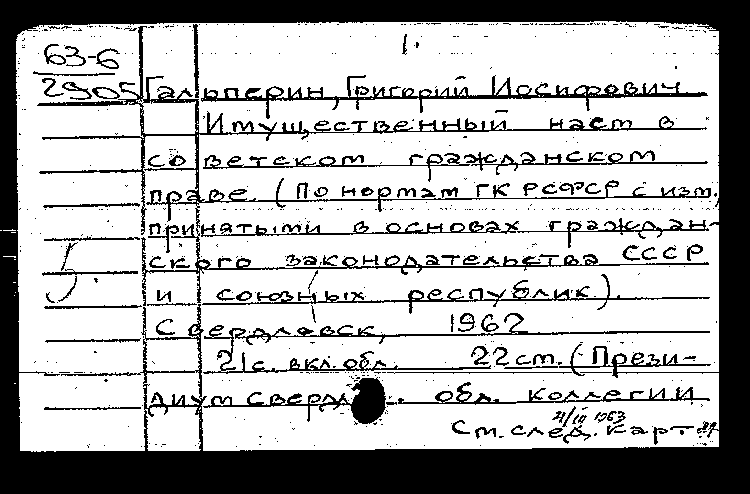 1.
63-6
2905 Гальперин, Григорий Иосифович
Имущественный наст в
советском гражданском
праве. (По нормам ГК РСФСР с изм.,
принятыми в основах граждан-
ского законодательства СССР
и союзных республик).
Свердлавск, 1962
21с. вкл. обл. 22 ст. (Прези-
диум Свердл. обл. коллегии
21/III 1963
См. след. карт
5.